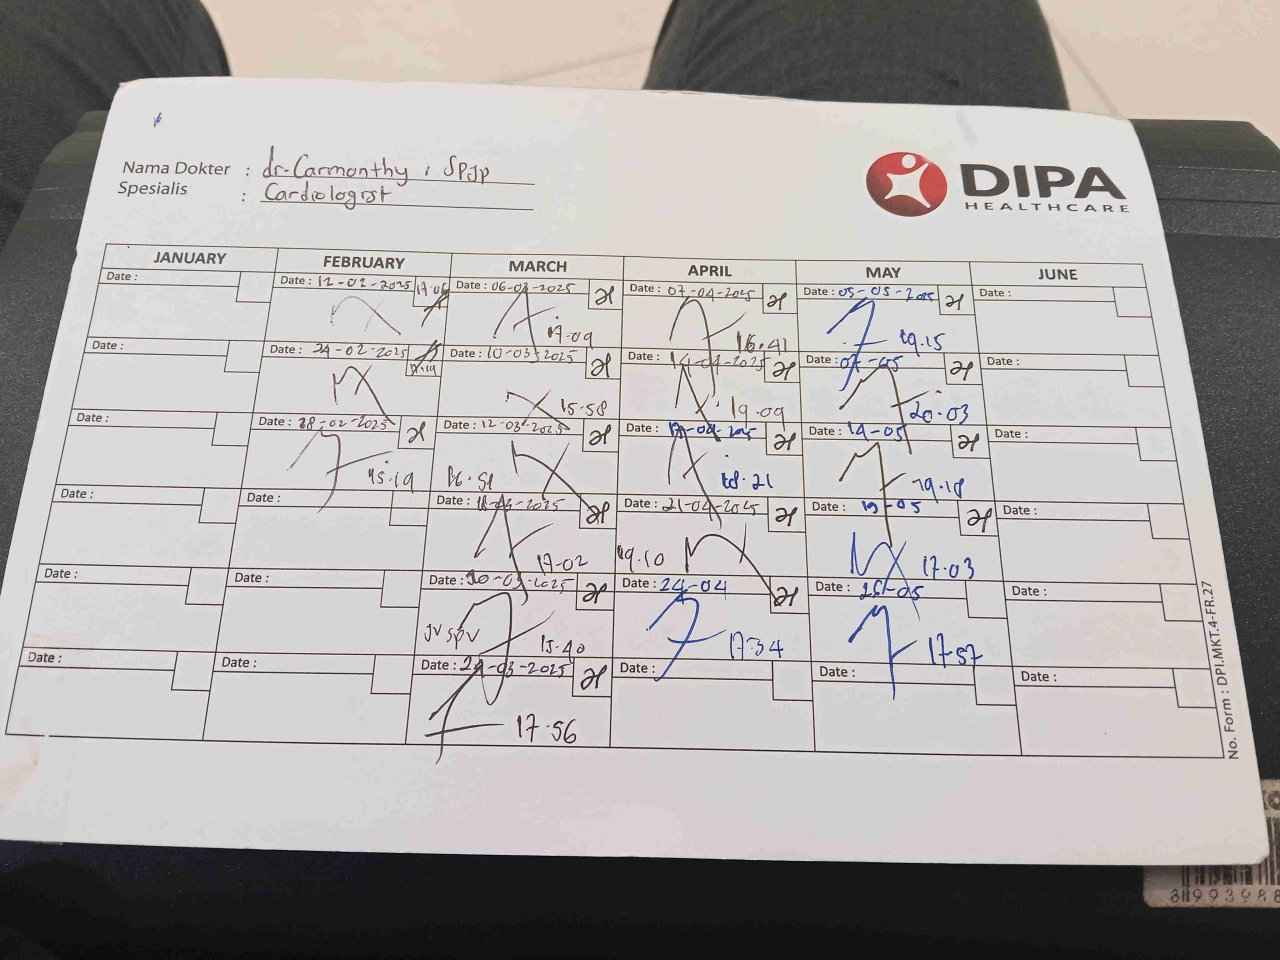 Nama Dokter : dr. Carmonthy, SpJp
Spesialis : Cardiologist
DIPA
HEALTHCARE
JANUARY FEBRUARY MARCH APRIL MAY JUNE
Date : Date : 12-02-2025 17.06 Date : 06-03-2025 Date : 07-04-2025 Date : 05-05-2025 Date :
17.09 16.41 19.15
Date : Date : 24-02-2025 Date : 10-03-2025 Date : 14-04-2025 Date : 07-05 Date :
15.58 19.09 20.03
Date : Date : 28-02-2025 Date : 12-03-2025 Date : 17-04-2025 Date : 14-05 Date :
15.19 16.51 18.21 19.18
Date : Date : Date : 18-03-2025 Date : 21-04-2025 Date : 19-05 Date :
17.02 19.10 17.03
Date : Date : Date : 20-03-2025 Date : 24-04 Date : 26-05 Date :
JV SPV 15.40 17.34 17.57
Date : Date : Date : 24-03-2025 Date : Date : Date :
17.56
No. Form : DPI.MKT.4-FR.27